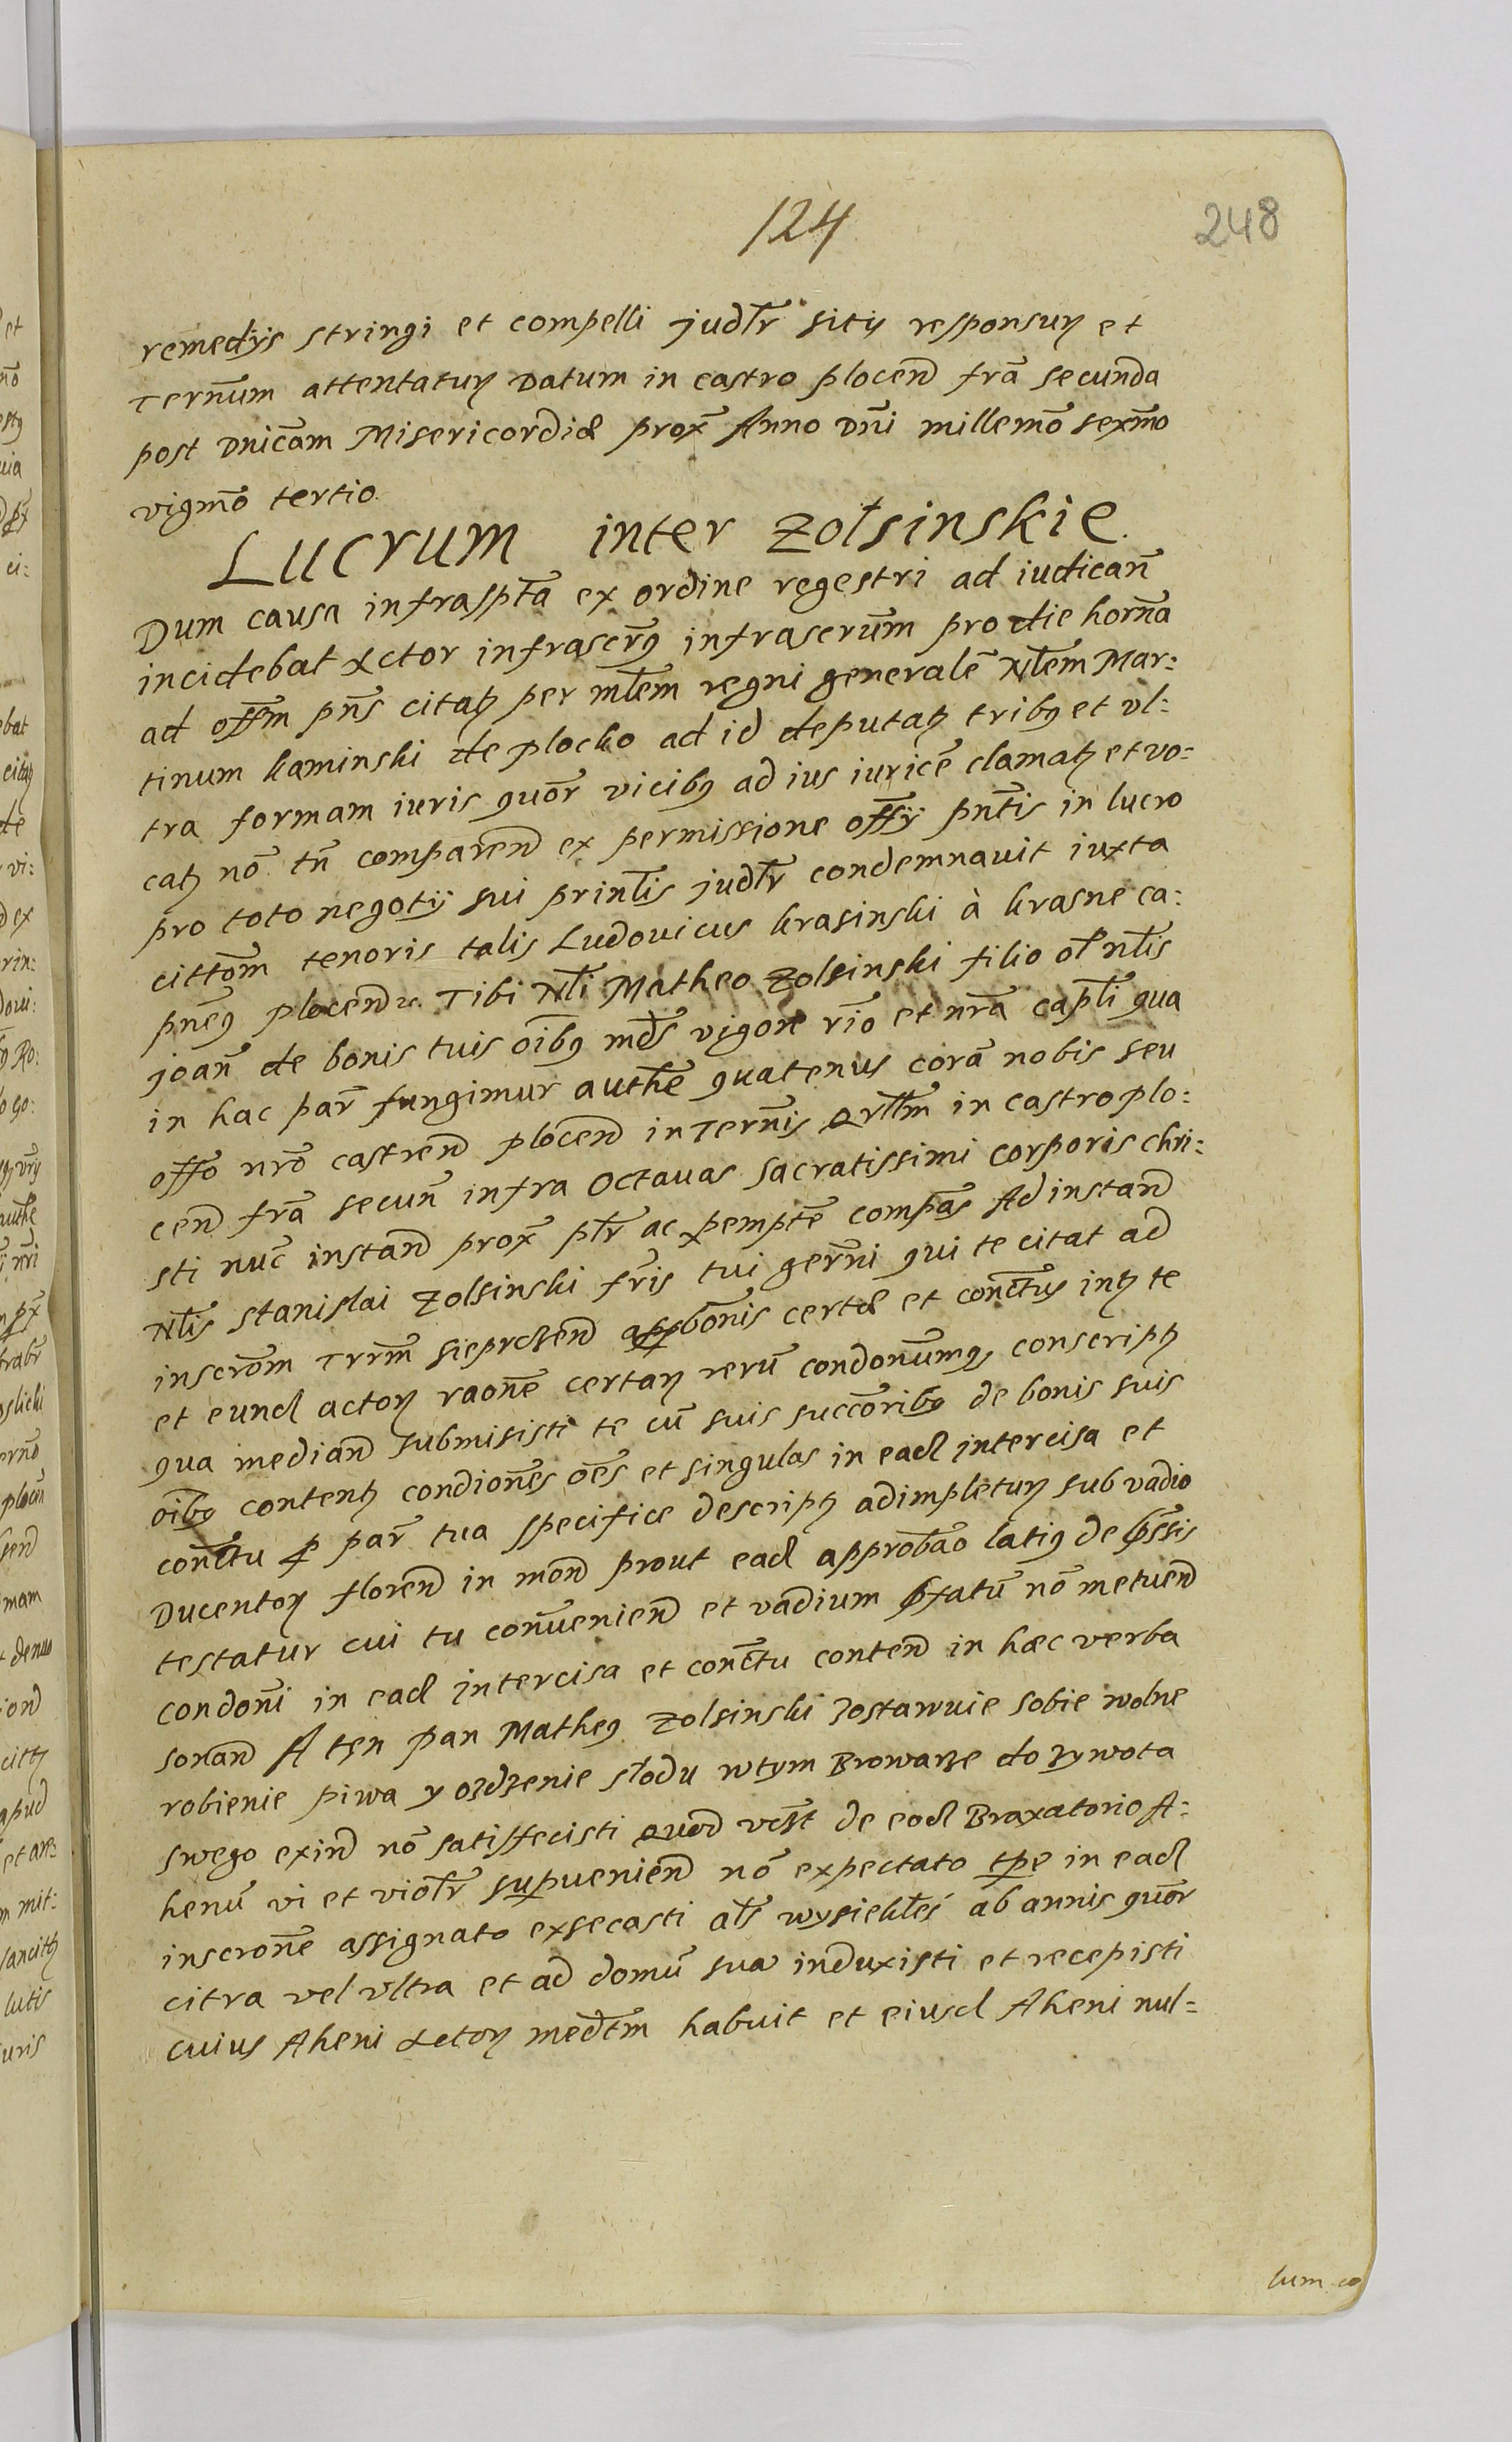 124
248
remedijs stringi et compelli judlr sitis responsurꝫ et
Ternum attentaturꝫ Datum in castro plocen fra secunda
post Dnicam Misericordiæ prox Anno Dni millemo sexmo
vigmo tertio
Lucrum inter Zołsinskie.
Dum causa infraspta ex ordine regestri ad iudican
incidebat Actor infrascrus infrascrum pro die horna
ad offm pns citatꝫ per mlem regni generale Nlem Mar=
tinum Kaminski de plocko ad id deputatꝫ tribꝫ et vl=
tra formam iuris quor vicibꝫ ad ius iurice clamatꝫ et vo=
catꝫ no tn comparen ex permissione offij pntis in lucro
pro toto negotij sui prinlis judlr condemnauit iuxta
cittom tenoris talis Ludovicus Krasinski à Krasne ca=
pneꝫ plocen Tibi Nli Matheo Zolsinski filio ol nlis
joan de bonis tuis oibꝫ mds vigore rio et nra capli qua
in hac par fungimur authe quatenus cora nobis seu
offo nro castren plocen in Ternis qrllm in castro plo=
cen fra secun infra Octauas Sacratissimi Corporis chri=
sti nuc instan prox plr ac pempte compas Ad instan
Nlis Stanislai Zolsinski fris tui gerni qui te citat ad
inscrom Trrm Sieprcsen appbonis certæ et conctus intꝫ te
et eund actorꝫ raone certarꝫ reru condonumqꝫ conscriptꝫ
qua median submisisti te cu suis succoribꝫ de bonis suis
oibꝫ contentꝫ condiones oes et singulas in ead intercisa et
conctu p par tua specifice descriptꝫ adimpleturꝫ sub vadio
Ducentorꝫ floren in mon prout ead approbao latiꝫ de pssis
testatur cui tu convenien et vadium pfatu no metuen
condoni in ead intercisa et conctu conten in hæc verba
sonan A ten pan Matheꝫ Zolsinski zostawuie sobie wolne
robienie piwa y ozdzenie słodu wtym Browarze do zywota
swego exin no satisfecisti quod vdst de eod Braxatorio A=
henu vi et violr supuenien no expectato tpe in ead
inscrone assignato exsecasti als wysiekłes ab annis quor
citra vel vltra et ad domu sua induxisti et recepisti
cuius Aheni Actorꝫ medtm habuit et eiusd Aheni nul=
lum co